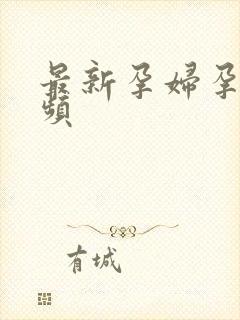 最新孕婦孕
頻
有城